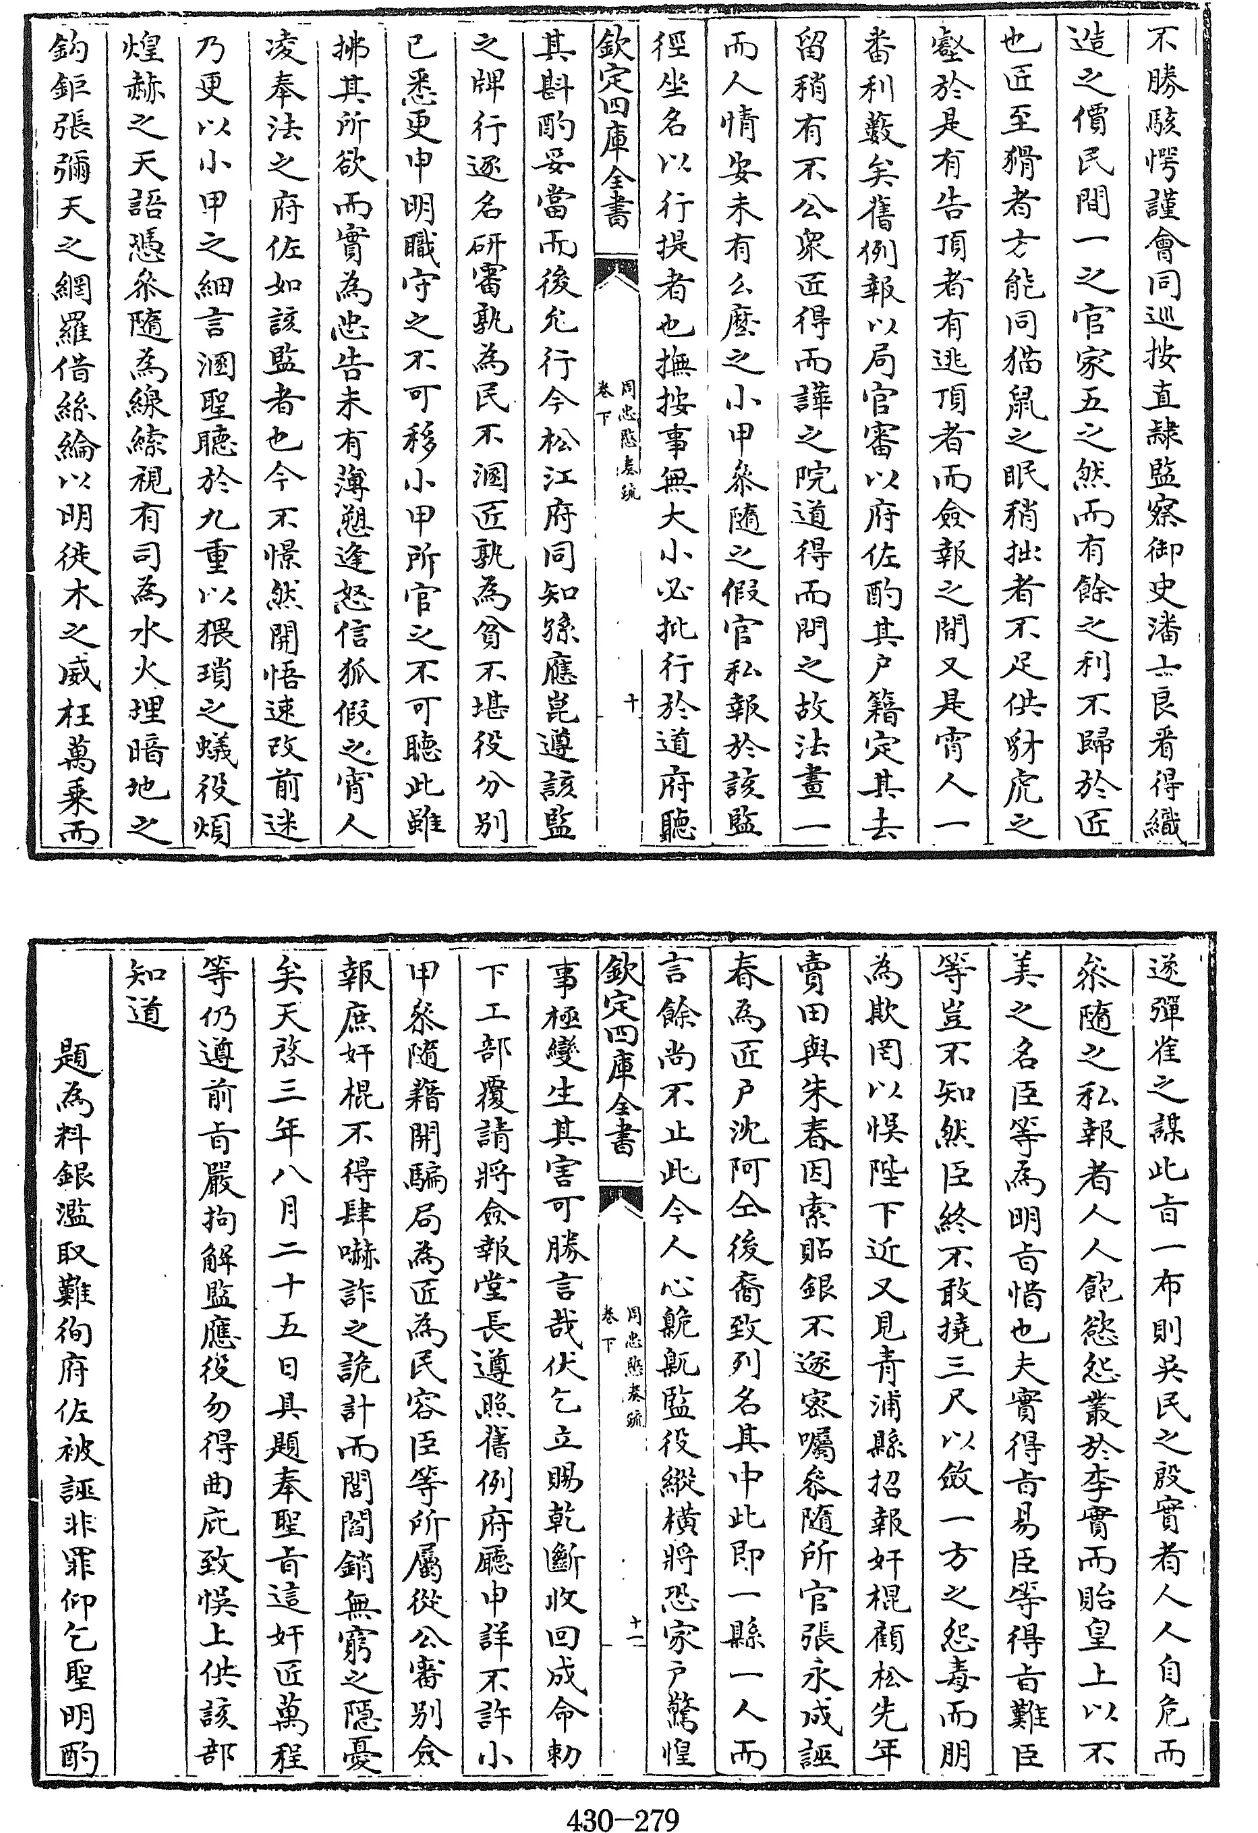 不勝駭愕謹會同巡按直隸監察御史潘士良看得織
造之價民間一之官家五之然而有餘之利不歸於匠
也匠至猾者方能同猫鼠之眠稍拙者不足供豺虎之
壑於是有告頂者有逃頂者而僉報之間又是宵人一
番利藪矣舊例報以局官審以府佐酌其戶籍定其去
留稍有不公衆匠得而譁之院道得而問之故法畫一
而人情安未有么麼之小甲叅隨之假官私報於該監
徑坐名以行提者也撫按事無大小必批行於道府聽
欽定四庫全書
周忠愍奏疏
卷下
十
其斟酌妥當而後允行今松江府同知孫應崑遵該監
之牌行逐名研審孰為民不溷匠孰為貧不堪役分別
已悉更申明職守之不可移小甲所官之不可聽此雖
拂其所欲而實為忠告未有薄愬逢怒信狐假之宵人
凌奉法之府佐如該監者也今不憬然開悟速改前迷
乃更以小甲之細言溷聖聽於九重以猥瑣之蟻役煩
煌赫之天語憑叅隨為線索視有司為水火埋暗地之
鈎鉅張彌天之網羅借絲綸以明徙木之威枉萬乘而
遂彈雀之謀此旨一布則吳民之殷實者人人自危而
叅隨之私報者人人飽慾怨叢於李實而貽皇上以不
美之名臣等為明旨惜也夫實得旨易臣等得旨難臣
等豈不知然臣終不敢撓三尺以斂一方之怨毒而朋
為欺罔以悞陛下近又見青浦縣招報奸棍顧松先年
賣田與朱春因索貼銀不遂宻囑叅隨所官張永成誣
春為匠戶沈阿仝後裔致列名其中此即一縣一人而
言餘尚不止此今人心𡰈𡰈監役縱橫將恐家戶驚惶
欽定四庫全書
周忠愍奏疏
卷下
十一
事極變生其害可勝言哉伏乞立賜乾斷收回成命勅
下工部覆請將僉報堂長遵照舊例府廳申詳不許小
甲叅隨籍開騙局為匠為民容臣等所屬從公審別僉
報庶奸棍不得肆嚇詐之詭計而閭閻銷無窮之隱憂
矣天啓三年八月二十五日具題奉聖旨這奸匠萬程
等仍遵前旨嚴拘解監應役勿得曲庇致悞上供該部
知道
題為料銀濫取難徇府佐被誣非罪仰乞聖明酌
430-279